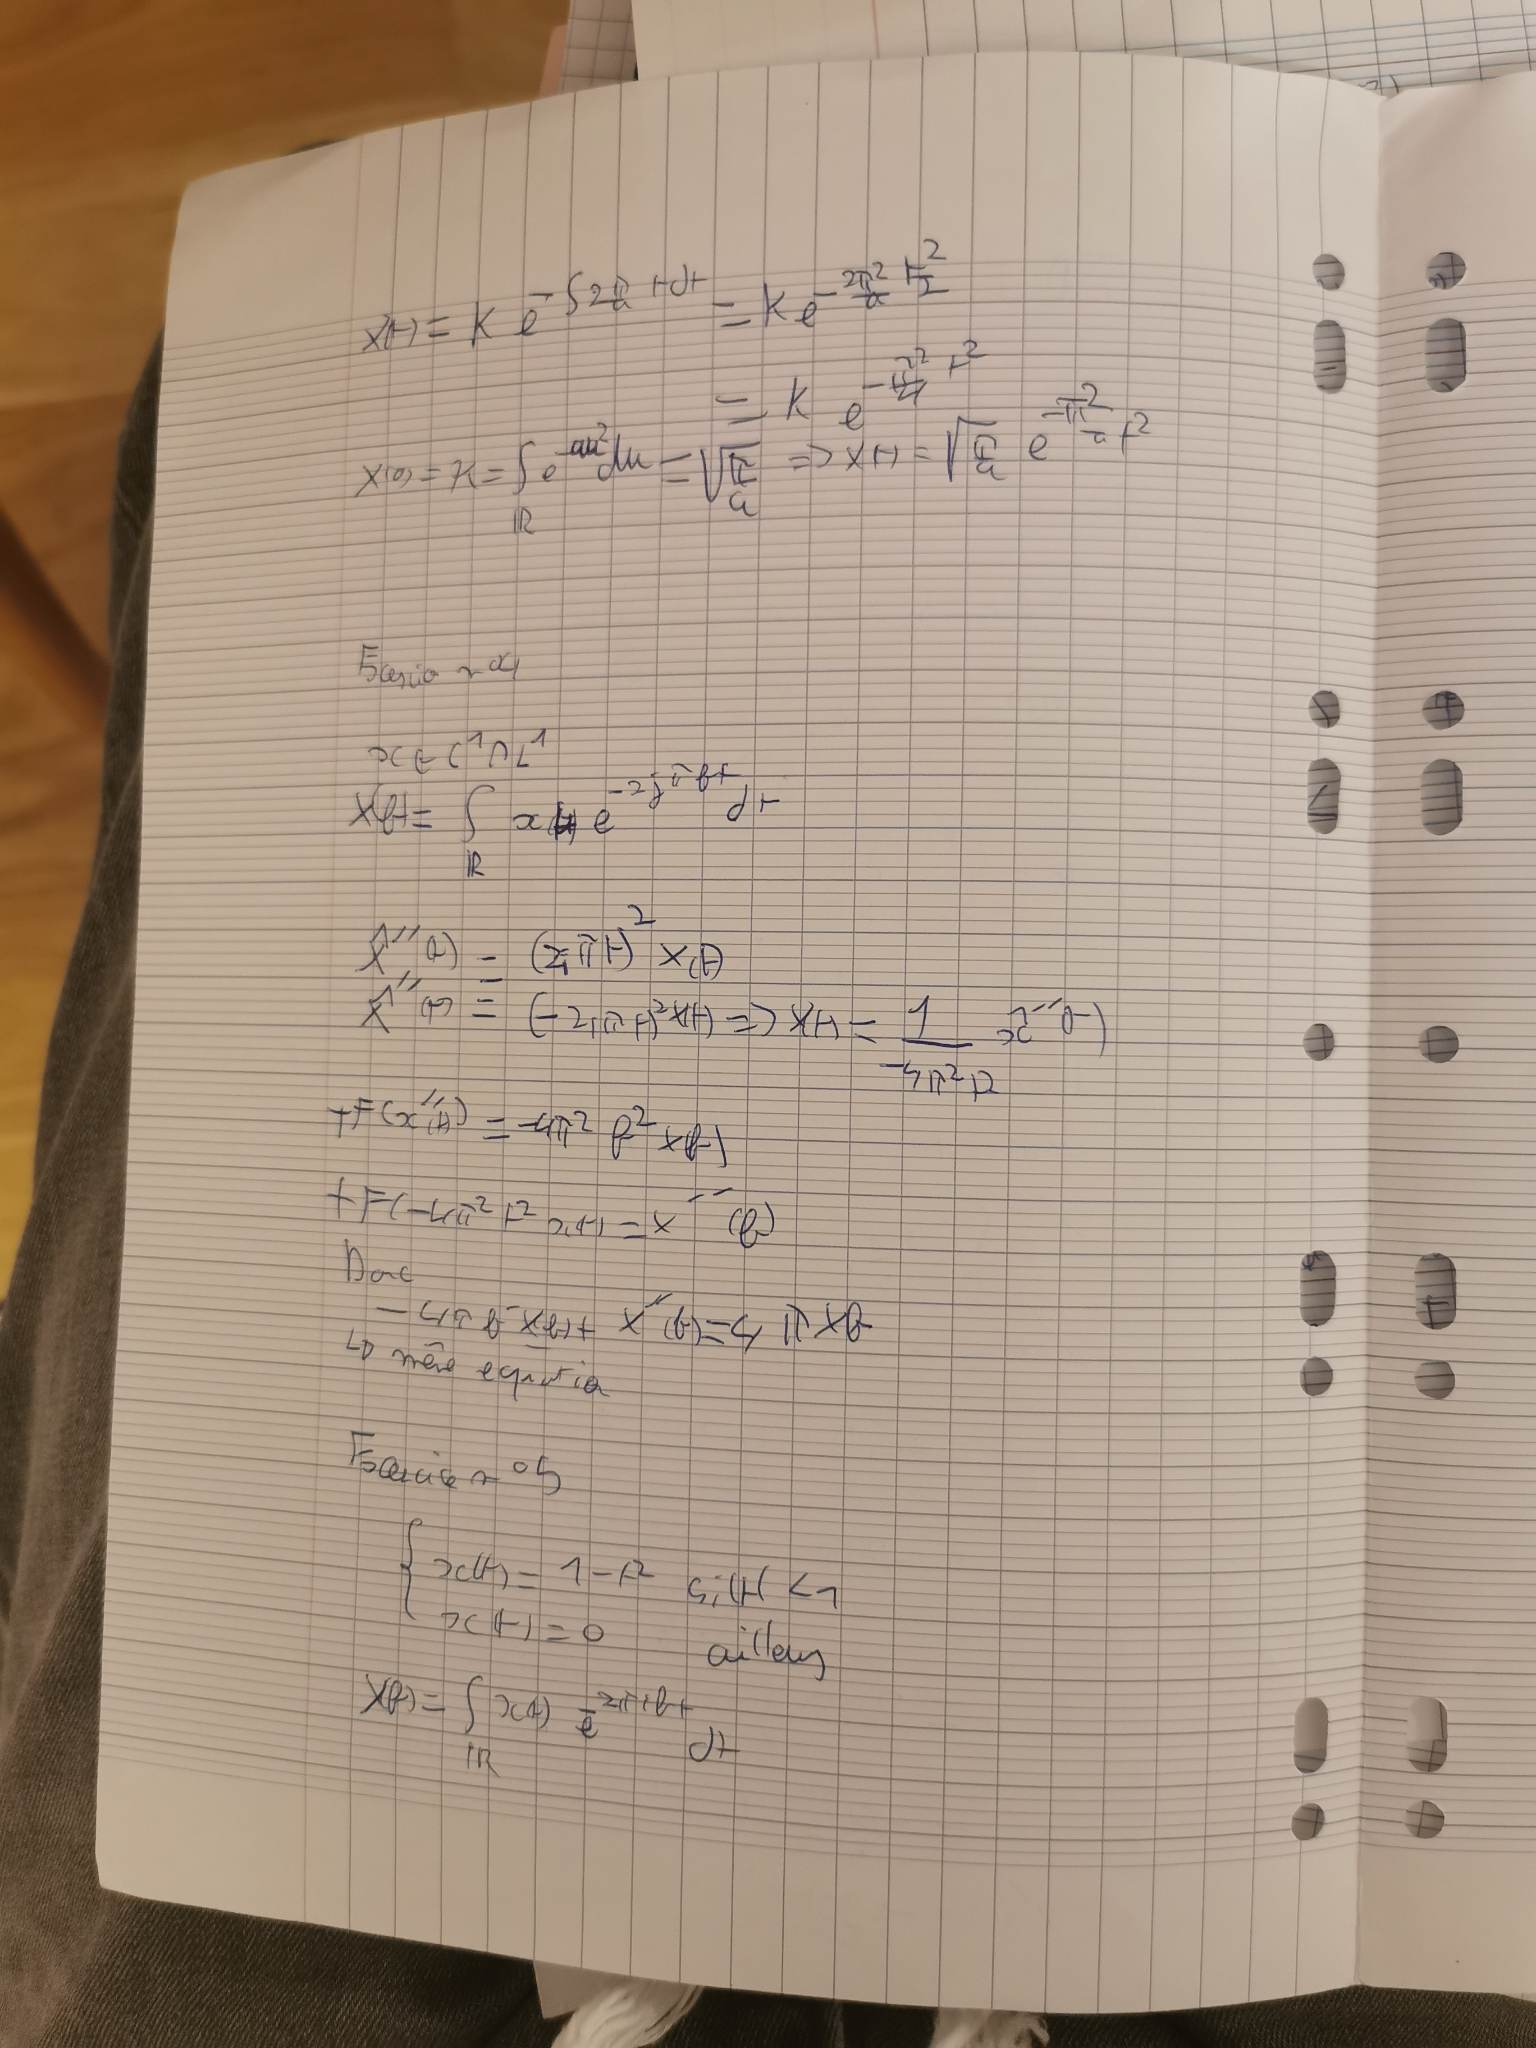 X(f) = K e^{-∫ 2π²/a f df} = K e^{-2π²/a f²/2}
= K e^{-π²/a f²}
X(0) = K = ∫_ℝ e^{-au²} du = √(π/a) ⇒ X(f) = √(π/a) e^{-π²/a f²}
Exercice n°4
x ∈ C¹ ∩ L¹
X(f) = ∫_ℝ x(t) e^{-2jπft} dt
= (2iπf)² X(f)
= (-2iπt)² x(t) ⇒ x(t) = 1/(-4π²t²)
TF(x''(t)) = -4π² f² X(f)
TF(-4π² t² x(t)) = X''(f)
Donc
-4π f² X(f) + X''(f) = 4π X(f)
↳ même equation
Exercice n°5
{ x(t) = 1 - t² si |t| < 1
x(t) = 0 ailleurs
X(f) = ∫_ℝ x(t) e^{-2πift} dt